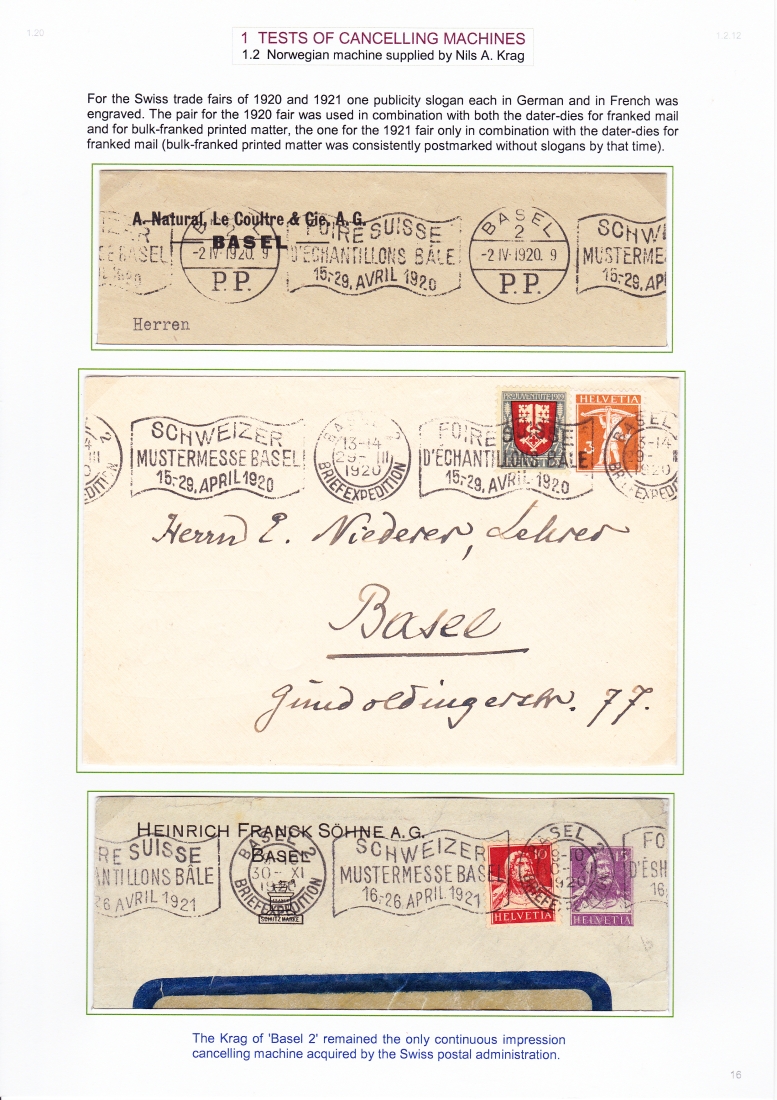 1.20
1.2.12
1 TESTS OF CANCELLING MACHINES
1.2 Norwegian machine supplied by Nils A. Krag
For the Swiss trade fairs of 1920 and 1921 one publicity slogan each in German and in French was
engraved. The pair for the 1920 fair was used in combination with both the dater-dies for franked mail
and for bulk-franked printed matter, the one for the 1921 fair only in combination with the dater-dies for
franked mail (bulk-franked printed matter was consistently postmarked without slogans by that time).
A. Natural, Le Coultre & Cie. A. G.
BASEL
BASEL
2
-2 IV-1920. 9
P.P.
FOIRE SUISSE
D'ECHANTILLONS BÂLE
15.-29. AVRIL 1920
BASEL
2
-2 IV-1920. 9
P.P.
SCHW
MUSTERME
15.-29. AP
Herren
SCHWEIZER
MUSTERMESSE BASEL
15.-29. APRIL 1920
BA 2
13-14
29- III
1920
BRIEFEXPEDITION
FOIRE SUISSE
D'ECHANTILLONS BÂLE
15.-29. AVRIL 1920
PRO JUVENTUTE 1919
HELVETIA
BASEL 2
13-14
1920
BRIEFEXPEDI
Herrn E. Niederer, Lehrer
Basel
Gundoldingerstr. 77.
HEINRICH FRANCK SÖHNE A.G.
BASEL
RE SUISSE
ANTILLONS BÂLE
26 AVRIL 1921
BASEL 2
30- XI
BRIEFEXPEDITION
SCHUTZ MARKE
SCHWEIZER
MUSTERMESSE BASEL
16.-26. APRIL 1921
10
HELVETIA
BASEL 2
15
HELVETIA
FO
D'ÉSH
16
The Krag of 'Basel 2' remained the only continuous impression
cancelling machine acquired by the Swiss postal administration.
16